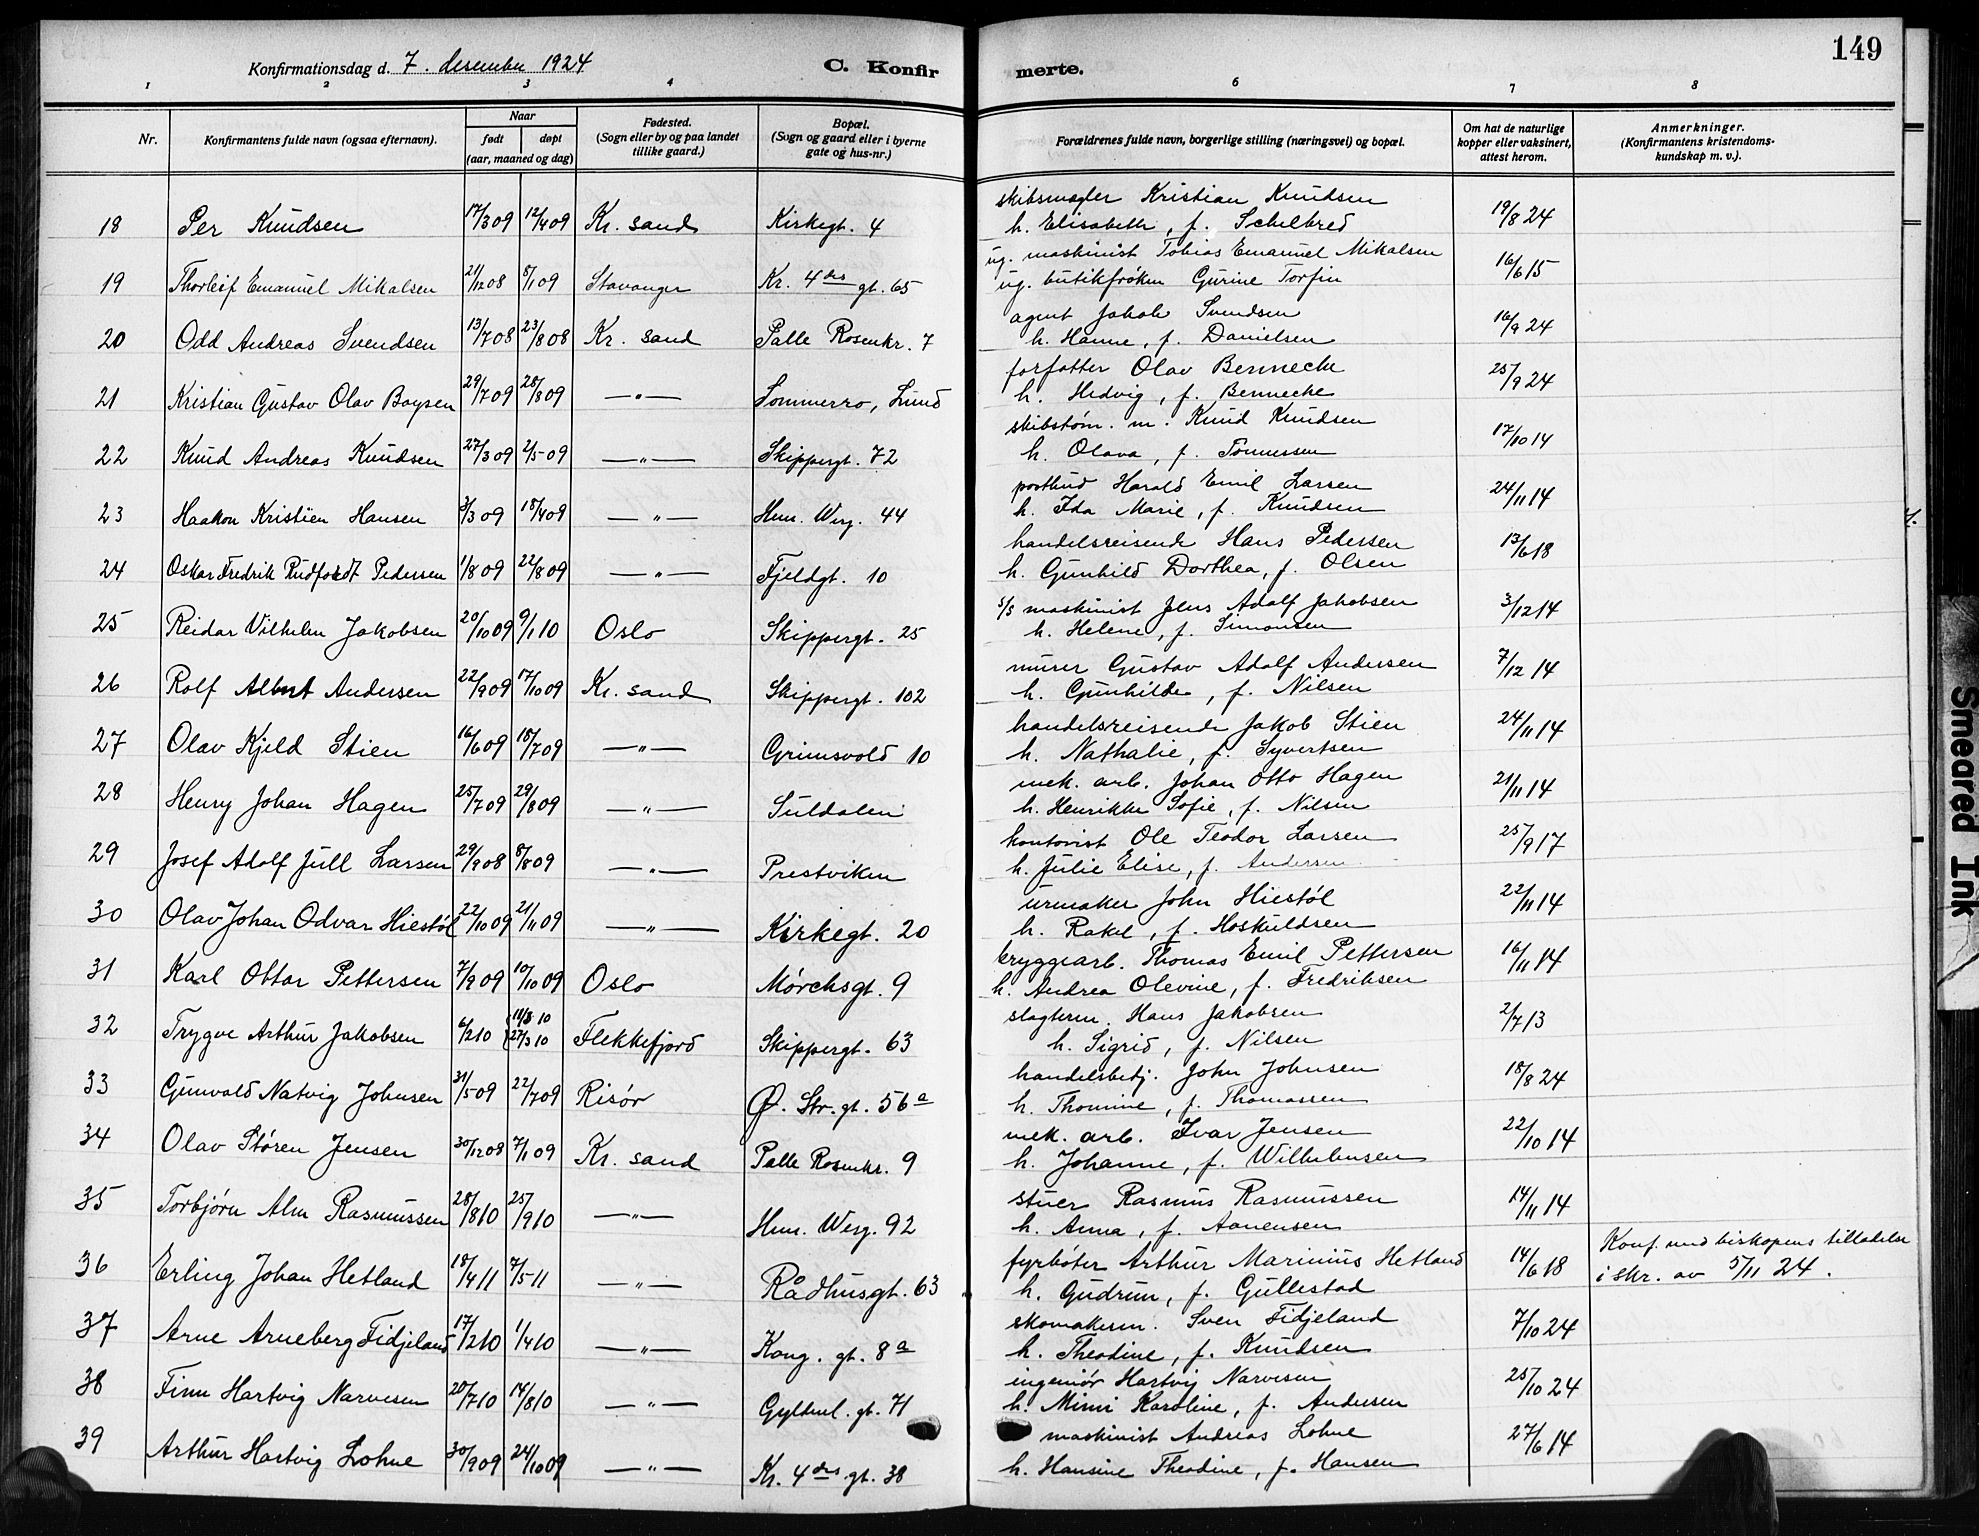 149
Konfirmationsdag d. 7. desember 1924 C. Konfirmerte.
1 2 3 4 6 7 8
Nr. Konfirmantens fulde navn (ogsaa efternavn). Naar født døpt (aar, maaned og dag) Fødested. (Sogn eller by og paa landet tillike gaard.) Bopæl. (Sogn og gaard eller i byerne gate og hus-nr.) Forældrenes fulde navn, borgerlige stilling (næringsvei) og bopæl. Om hat de naturlige kopper eller vaksinert, attest herom. Anmerkninger. (Konfirmantens kristendomskundskap m. v.).
skibsmægler Kristian Knudsen
18 Per Knudsen 17/3 09 12/4 09 Kr. sand Kirkegt. 4 h. Elisabeth, f. Schelbred 19/8 24
ug. maskinist Tobias Emanuel Mikalsen
19 Thorleif Emanuel Mikalsen 21/12 08 8/1 09 Stavanger Kr. 4des gt. 65 ug. butikfrøken Gurine Torfin 16/6 15
agent Jakob Svendsen
20 Odd Andreas Svendsen 13/7 08 23/8 08 Kr. sand Palle Rosenkr. 7 h. Hanne, f. Danielsen 16/9 24
forfatter Olav Bennecke
21 Kristian Gustav Olav Boysen 29/7 09 28/8 09 —"— Sommerro, Lund h. Hedvig, f. Bennecke 25/9 24
skibstøm. m. Knud Knudsen
22 Knud Andreas Knudsen 27/3 09 2/5 09 —"— Skippergt. 72 h. Olava, f. Tønnessen 17/10 14
postbud Harald Emil Larsen
23 Haakon Kristien Hansen 3/3 09 18/4 09 —"— Hen. Werg. 44 h. Ida Marie, f. Knudsen 24/11 14
handelsreisende Hans Pedersen
24 Oskar Fredrik Pedersen 1/8 09 22/8 09 —"— Fjeldgt. 10 h. Gunhild Dorthea, f. Olsen 13/6 18
s/s maskinist Jens Adolf Jakobsen
25 Reidar Vilhelm Jakobsen 20/10 09 9/1 10 Oslo Skippergt. 25 h. Helene, f. Simonsen 3/12 14
murer Gustav Adolf Andersen
26 Rolf Albert Andersen 22/9 09 17/10 09 Kr. sand Skippergt. 102 h. Gunhilde, f. Nilsen 7/12 14
handelsreisende Jakob Stien
27 Olav Kjeld Stien 16/6 09 18/7 09 —"— Grimsvold 10 h. Nathalie, f. Syvertsen 24/11 14
mek. arb. Johan Otto Hagen
28 Henry Johan Hagen 25/7 09 29/8 09 —"— Suldalen h. Henrikke Sofie, f. Nilsen 21/11 14
kontorist Ole Teodor Larsen
29 Josef Adolf Jull Larsen 29/9 08 8/8 09 —"— Prestviken h. Julie Elise, f. Andersen 25/9 17
urmaker John Hiestøl
30 Olav Johan Odvar Hiestøl 22/10 09 21/11 09 —"— Kirkegt. 20 h. Rakel, f. Hoskuldsen 22/11 14
bryggearb. Thomas Emil Pettersen
31 Karl Ottar Pettersen 7/9 09 10/10 09 Oslo Mørchsgt. 9 h. Andrea Olevine, f. Fredriksen 16/11 14
slagterm. Hans Jakobsen
32 Trygve Arthur Jakobsen 6/2 10 11/3 10 27/3 10 Flekkefjord Skippergt. 63 h. Sigrid, f. Nilsen 2/7 13
handelsbetj. John Johnsen
33 Gunvald Natvig Johnsen 31/5 09 22/7 09 Risør Ø. Str. gt. 56a h. Thomine, f. Thomassen 18/8 24
mek. arb. Ivar Jensen
34 Olav Støren Jensen 30/12 08 7/1 09 Kr. sand Palle Rosenkr. 9 h. Johanne, f. Wilhelmsen 22/10 14
stuer Rasmus Rasmussen
35 Torbjørn Alm Rasmussen 28/8 10 25/9 10 —"— Hen. Werg. 92 h. Anna, f. Aanensen 14/11 14
fyrbøter Arthur Marinius Hetland Konf. med biskopens tilladelse
36 Erling Johan Hetland 18/4 11 7/5 11 —"— Rådhusgt. 63 h. Gudrun, f. Gullestad 14/6 18 i skr. av 5/11 24.
skomakerm. Sven Fidjeland
37 Arne Arneberg Fidjeland 17/2 10 1/4 10 —"— Kong. gt. 8a h. Theodine, f. Knudsen 7/10 24
ingeniør Hartvig Narvesen
38 Finn Hartvig Narvesen 20/7 10 14/8 10 —"— Gyldenl. gt. 71 h. Mimi Karoline, f. Andersen 25/10 24
maskinist Andreas Lohne
39 Arthur Hartvig Lohne 30/9 09 24/10 09 —"— Kr. 4des gt. 38 h. Hansine Theodine, f. Hansen 27/6 14
Smeared Ink